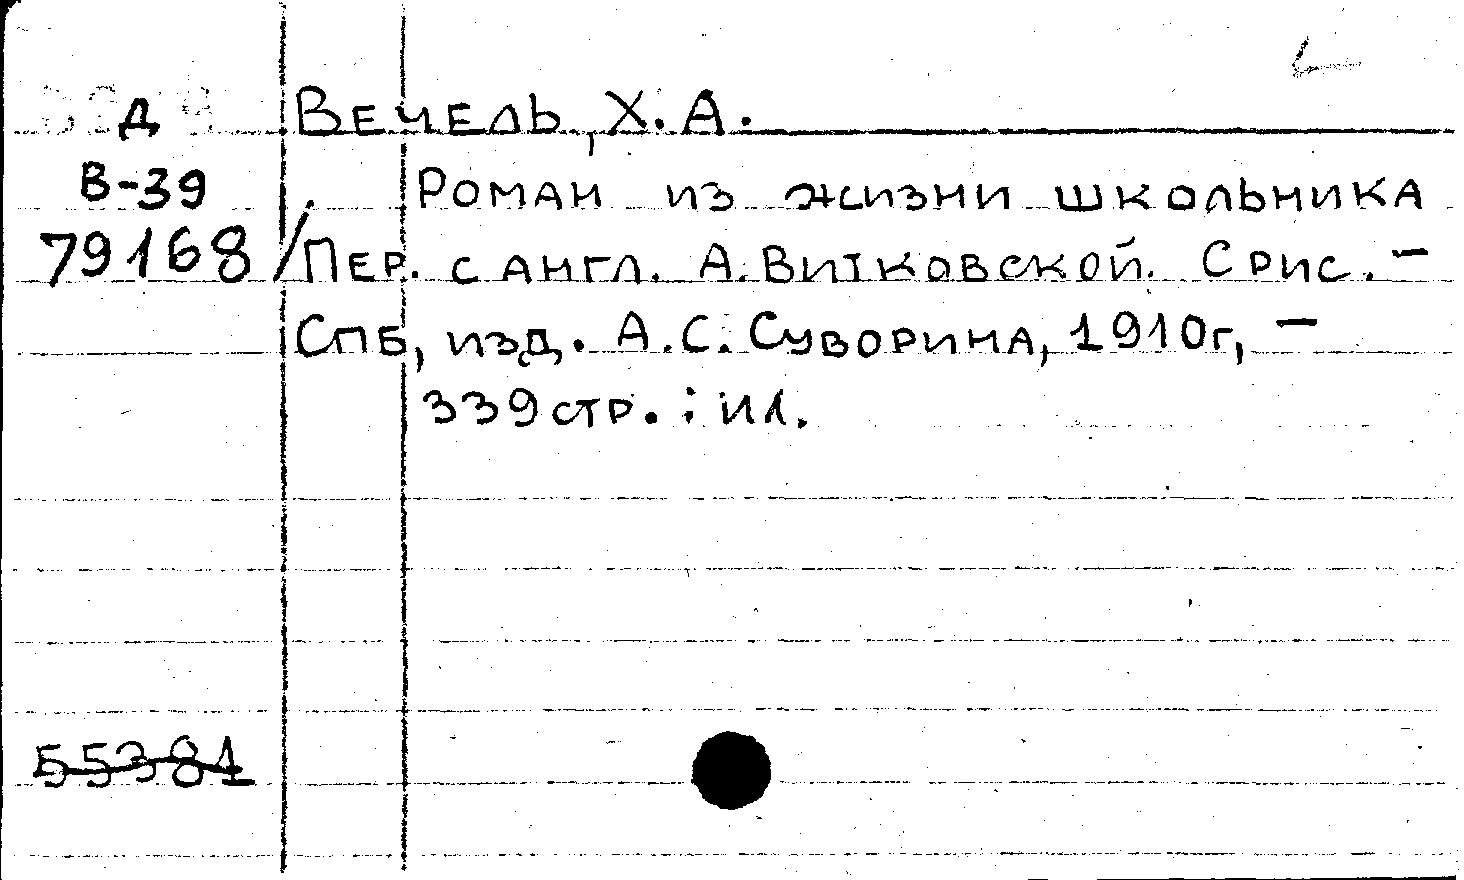 Д Вечель, Х. А.
В-39 Роман из жизни школьника
79168 / Пер. с англ. А. Витковской. С рис. –
Спб, изд. А.С. Суворина, 1910г, –
339 стр. : ил.
55381